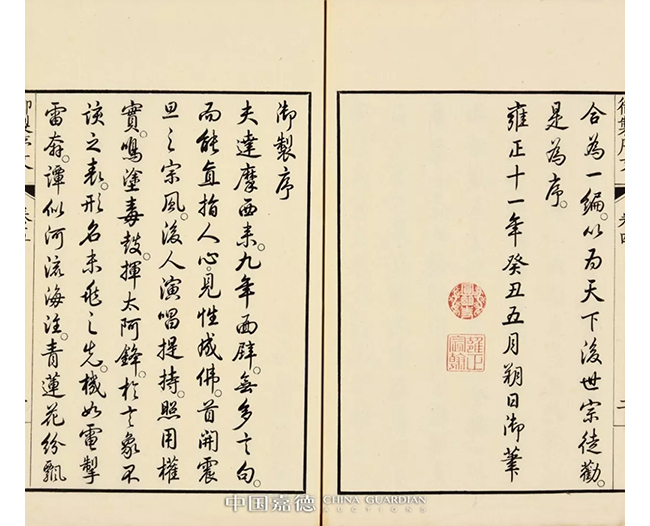 合為一編。以爲天下後世宗徒勸。
是為序。
雍正十一年癸丑五月朔日御筆
雍正宸翰
御製序
夫達摩西来。九年面壁。無多言句。
而能直指人心。見性成佛。首開震
旦之宗風。後人演唱提持。照用權
實。鳴塗毒鼓。揮太阿鋒。於言象不
該之表。形名未兆之先。機如電掣
雷奔。譚似河流海注。青蓮花紛飄
中国嘉德 CHINA GUARDIAN
AUCTIONS